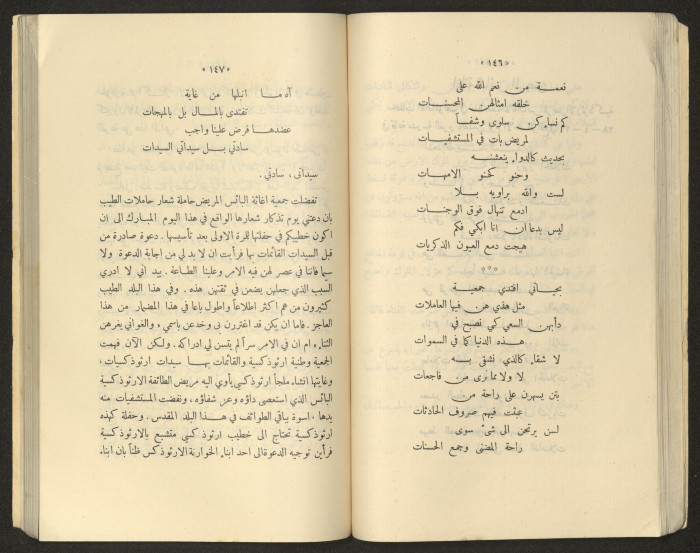 «١٤٦»
فنعمة من نعم الله على
خلقه امثالهن المحسنات
كم نسا كن سلوى وشفا
لمريضات في المستشفيات
بحديث كالدواء ينعشنه
وحنو كحنو الامهات
لست والله براويه بلا
ادمع تنهال فوق الوجنات
ليس بدعا ان انا ابكي فكم
هيجت دمع العيون الذكريات
بحياتي افتدي جمعية
مثل هذي هن فيها العاملات
دأبهن السعي كي نصبح في
هذه الدنيا كما في السموات
لا شقاء كالذي نشقى به
لا ولا مما نرى من فاجعات
بتن يسهرن على راحة من
عبثت فيهم صروف الحادثات
لسن يرتحن الى شئ سوى
راحة المضنى وجمع الحسنات
«١٤٧»
آه ما انبلها من غاية
تفتدى بالمال بل بالمهجات
عضدها فرض علينا واجب
سادتي بل سيداتي السيدات
سيداتي ، سادتي .
تفضلت جمعية اغاثة البائس المريض حاملة شعار حاملات الطيب
بان دعتني يوم تذكار شعارها الواقع في هذا اليوم المبارك الى ان
اكون خطيبكم في حفلتها للمرة الاولى بعد تأسيسها . دعوة صادرة من
قبل السيدات القائمات بها فرأيت ان لا بد لي من اجابة الدعوة ولا
سيما فاننا في عصر لهن فيه الامر وعلينا الطاعة . بيد اني لا ادري
السبب الذي جعلهن يضعن في ثقتهن هذه . وفي هذا البلد الطيب
كثيرون من هم اكثر اطلاعاً واطول باعا في هذا المضمار من هذا
العاجز . فاما ان يكن قد اغتررن بي وخدعن باسمي ، والغواني يغرهن
الثناء ام ان في الامر سراً لم يتسن لي ادراكه . ولكن الآن فهمت
الجمعية وطنية ارثوذكسية والقائمات بها سيدات ارثوذكسيات ،
وغايتها انشاء ملجأ ارثوذكسي يأوي اليه مريض الطائفة الارثوذكسية
البائس الذي استعصى داؤه وعز شفاؤه ، ونفضت المستشفيات منه
يدها ، اسوة بباقي الطوائف في هذا البلد المقدس . وحفلة كهذه
ارثوذكسية تحتاج الى خطيب ارثوذكسي متشبع بالارثوذكسية
فرأين توجيه الدعوة الى احد ابناء الخوارنة الارثوذكس ظناً بان ابناء